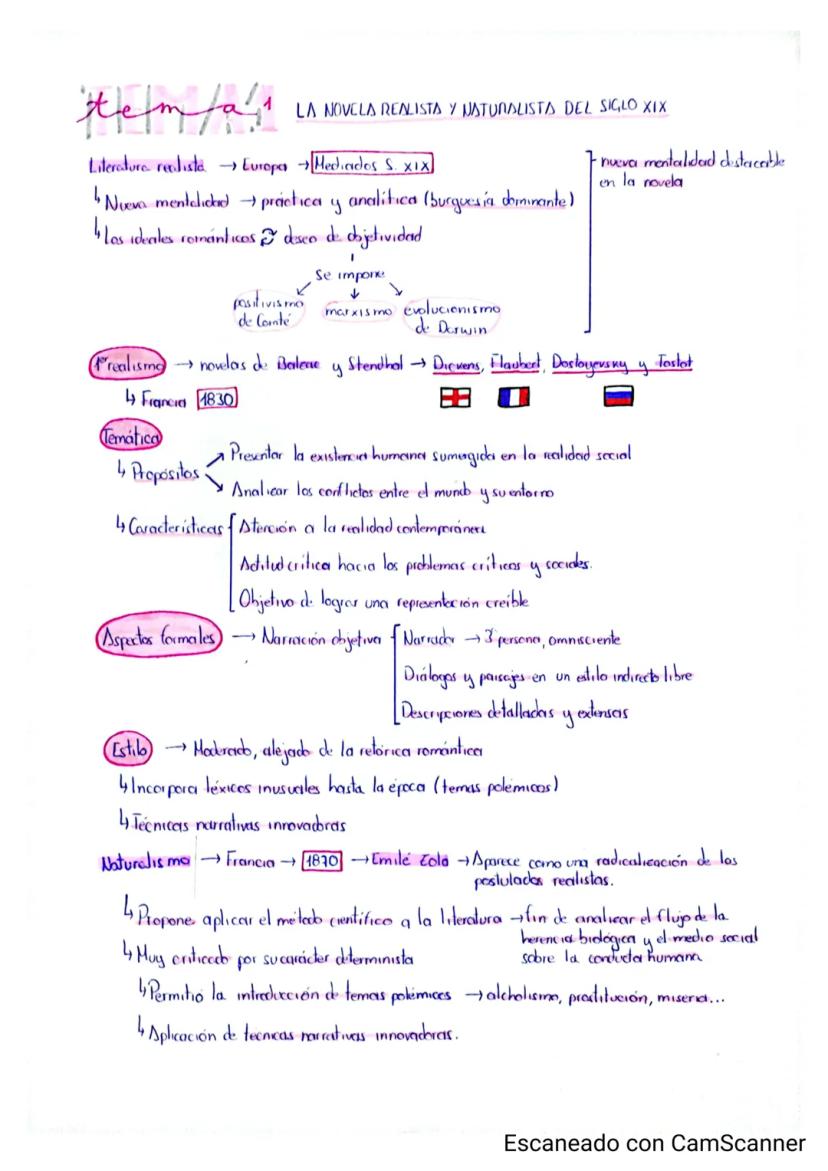 tema 1 LA NOVELA REALISTA Y NATURALISTA DEL SIGLO XIX
Literatura realista → Europa → Mediados S. XIX
nueva mentalidad destacable
en la novela
↳ Nueva mentalidad → práctica y analítica (burguesía dominante)
↳ Los ideales románticos deseo de objetividad
Se impone
positivismo
de Comté
marxismo
evolucionismo
de Darwin
1º realismo → novelas de Balzac y Stendhal → Dickens, Flaubert, Dostoyevsky y Tostoi
↳ Francia 1830
Temática
↳ Propósitos
Presentar la existencia humana sumergida en la realidad social
Analizar los conflictos entre el mundo y su entorno
↳ Características
Atención a la realidad contemporánea
Actitud crítica hacia los problemas críticos y sociales.
Objetivo de lograr una representación creíble
Aspectos formales → Narración objetiva
Narrador → 3ª persona, omnisciente
Diálogos y paisajes en un estilo indirecto libre
Descripciones detalladas y extensas
Estilo → Moderado, alejado de la retórica romántica
↳ Incorpora léxicos inusuales hasta la época (temas polémicos)
↳ Técnicas narrativas innovadoras
Naturalismo → Francia → 1870 → Emilé Zola → Aparece como una radicalización de los
postulados realistas.
↳ Propone aplicar el método científico a la literatura → fin de analizar el flujo de la
herencia biológica y el medio social
sobre la conducta humana
↳ Muy criticado por su carácter determinista
↳ Permitió la introducción de temas polémicos → alcholismo, prostitución, miseria...
↳ Aplicación de técnicas narrativas innovadoras.
Escaneado con CamScanner